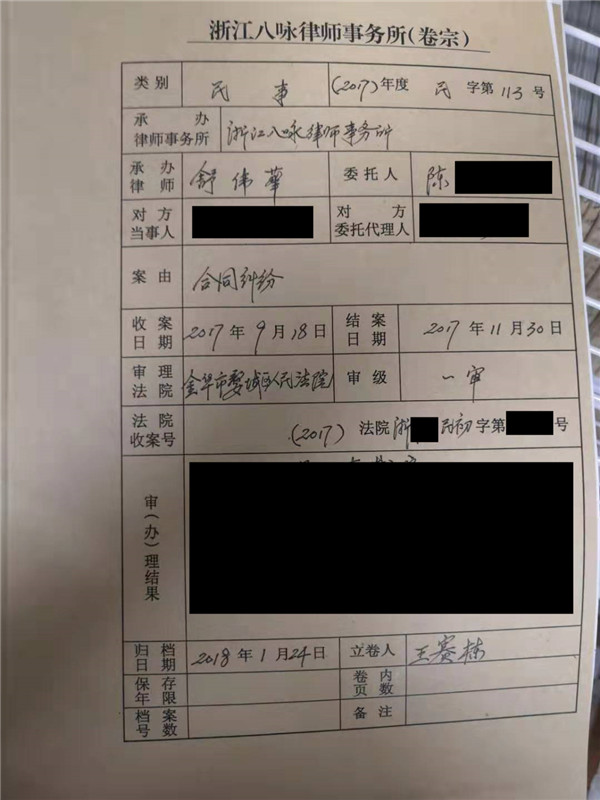 浙江八咏律师事务所(卷宗)
类别 民事 (2017)年度 民 字第 113 号
承办律师事务所 浙江八咏律师事务所
承办律师 舒伟華 委托人 陈
对方当事人 对方委托代理人
案由 合同纠纷
收案日期 2017年9月18日 结案日期 2017年11月30日
审理法院 金华市婺城区人民法院 审级 一审
法院收案号 (2017) 法院 浙 民初 字第 号
审(办)理结果
归档日期 2018年1月24日 立卷人 王赛栋
保存年限 卷内页数
档案号数 备注